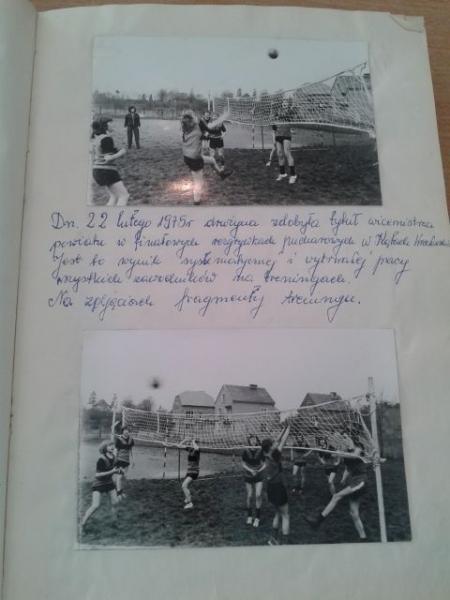 Dn. 22 lutego 1975r drużyna zdobyła tytuł wicemistrza
powiatu w finałowych rozgrywkach pucharowych w Kątach Wrocławs.
Jest to wynik systematycznej i wytrwałej pracy
wszystkich zawodników na treningach.
Na zdjęciach fragmenty treningu.